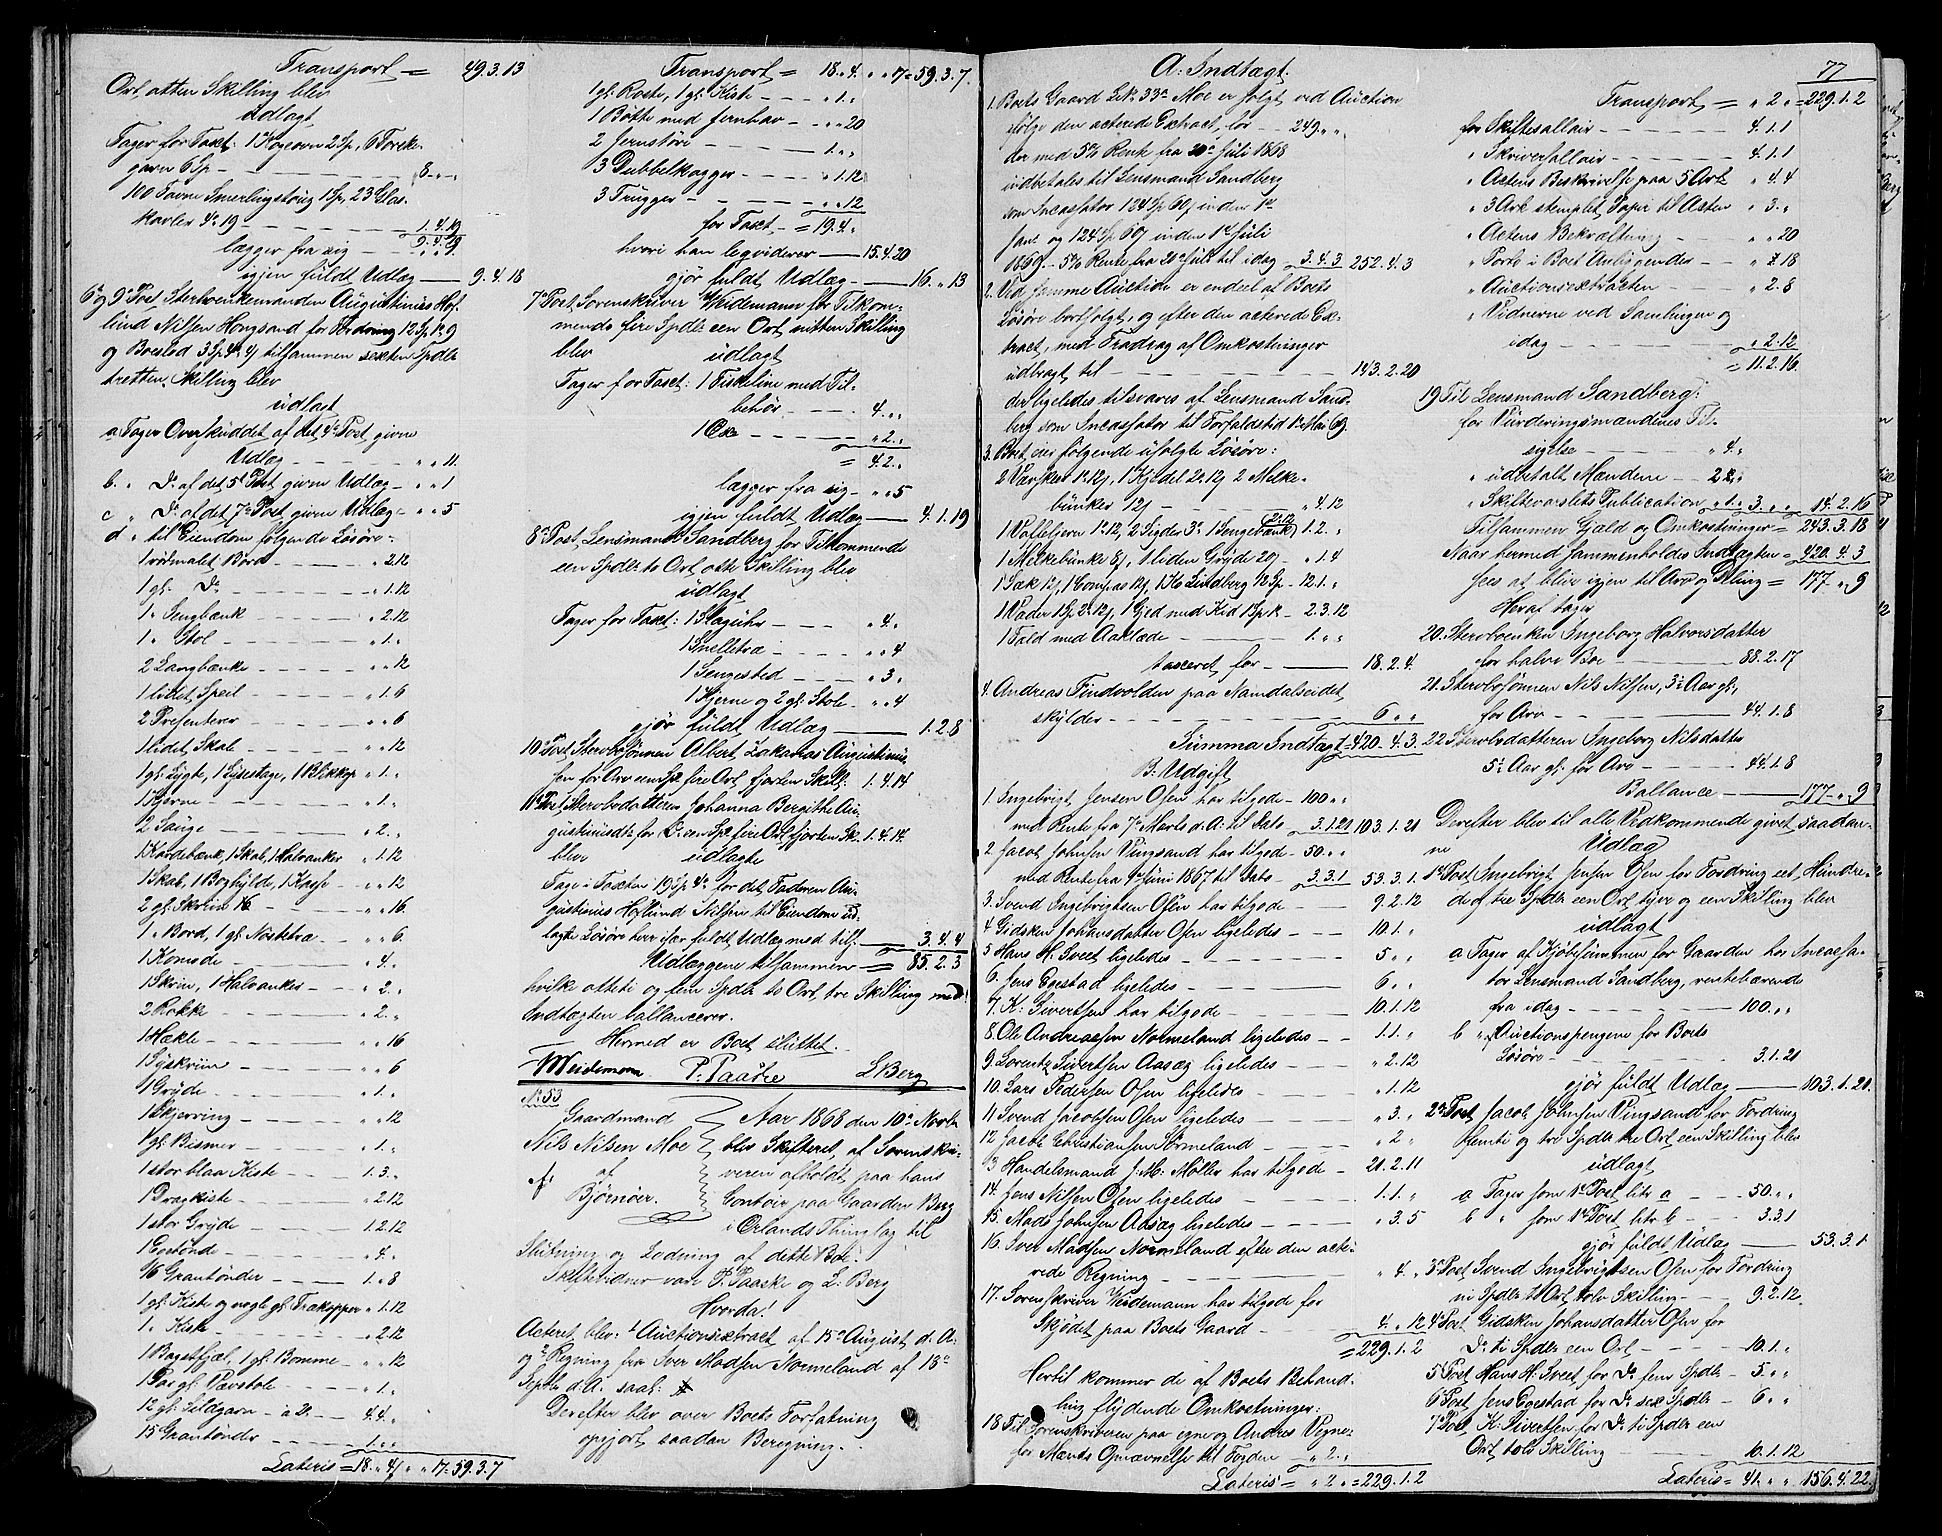 Transport = 49.3.13
Ort, otten Skilling blev
udlagt
Tager for Taxt: 1 Kogeovn 2 Sp, 6 Torske-
garn 6 Sp - 8 „ „
100 Favne Snerlingstoug 1 Sp, 23 Glas-
kavler 4 19 - 1.4.19
9.4.19
lægger fra sig - „ „ 
igjen fuldt Udlæg - 9.4.18
6 og 9 Post Sterboenkemanden Augustinus Hof-
lund Nilsen Hongsand for Fordring 12 Sp 1 9
og Boeslod 3 Sp 4 4 tilsammen sexten Spdlr
tretten Skilling blev
udlagt
a Tager Overskuddet af det 4 Post givne
Udlæg - „ „ 11
b. „ Do af det 5 Post givne Udlæg - „ „ 1
c „ Do af det 7 Post givne Udlæg - „ „ 5
d „ til Eiendom følgende Løsøre
1 rødmalet Bord - „ 2.12
1 gl. Do - „ 1.12
1 „ Sengbænk - „ 2.12
1 „ Stol - „ 1 „
2 Langbænke - „ „ 12
1 lidet Speil - „ 1.6
2 Presenterer - „ „ 6
1 lidet Skab - „ „ 12
1 gl. Lygte, 1 Lysestage, 1 Blikkop „ 1 „
1 Kjerne - „ 1 „
2 Sauge - „ 2 „
1 Kardebænk, 1 Skab, 1 Halvanker „ 1.12
1 Skab, 1 Boghylde, 1 - „ „ 12
2 gl. Skrin - „ „ 16
1 „ Bord, 1 gl. Nøstetræ - „ „ 6
1 Komode - „ 4 „
1 Skrin, 1 Halvanker - „ 2 „
2 Rokke - „ 2 „
1 Hækle - „ „ 16
1 Syskrin - „ „ 6
1 Gryde - „ 1 „
1 Skjerring - „ „ 12
1 gl. Bismer - „ 1 „
1 stor blaa Kiste - „ 1.3 „
1 Dragkiste - „ 2.12
1 stor Gryde - 1.2.12
1 - „ 4 „
16 Grantønder - 1 „ 8
1 gl. Kiste og nogle gl. Trækopper „ 1.12
1 „ Kiste - „ 2.12
1 Bagstfjæl, 1 gl. Bomme - „ „ 12
1 Par gl. Vævstole - „ 1 „
12 gl. Sildgarn - a 2 - 4.4 „
15 Grantønder - 1 „ „
Lateris = 18 „ 4 „ „ 17 = 59.3.7
Transport = 18 „ 4 „ „ 17 = 59.3.7
1 gl. Rokke, 1 gl. Kiste - „ 1 „
1 Bøtte med Jernhav - „ „ 20
2 Jernstøre - 1 „ „
3 Dubbelkagger - „ 1.12
3 Trugger - „ „ 12
for Taxt - = 19.4 „
hvori han leqviderer - 15.4.20
gjør fuldt Udlæg - 16 „ 13
7 Post, Sorenskriver Weidemann for Tilkom-
mende fire Spdlr een Ort nitten Skilling
blev udlagt
Tager for Taxt: 1 Fiskeline med Til-
behør - 4 „ „
1 Øxe - „ 2 „
= 4.2 „
lægger fra sig - „ „ 5
igjen fuldt Udlæg - 4.1.19
8 Post, Lensmand Sandberg for Tilkommende
een Spdlr to Ort otte Skilling blev
udlagt
Tager for Taxt: 1 Slaguhr - „ 4 „
1 Snelletræ - „ „ 4
1 Sengested - „ 3 „
1 Kjerne og 2 gl. Stole - „ „ 4
gjør fuldt Udlæg - 1.2.8
10 Post, Sterbosønnen Albert Zakarias Augustinus-
sen for Arv een Sp fire Ort fjorten Skill: 1.4.14
11 Post, Sterbodatteren Johanna Bergitha Au-
gustinusdtr for Do een Sp fire Ort fjorten Sk. 1.4.14.
blev udlagte
Tage i Taxten 19 Sp 4 for det Faderen Au-
gustinus Hoflund Nilsen til Eiendom ud-
lagte Løsøre hver især fuldt Udlæg med tils. - 3.4.4
Udlæggene tilsammen = 85.2.3
hvilke otteti og fem Spdlr to Ort tre Skilling med
Indtægten ballancerer.
Hermed er Boet sluttet.
Weidemann P. Paaske L Berg
No 53
Gaardmand
Nils Nilsen Moe
af
Bjørnøer.
Aar 1868 den 10 Novbr
blev Skifteret af Sorenskri-
veren afholdt paa hans
Contoir paa Gaarden Berg
i Ørlands Thinglag til
Slutning og Lodning af dette Boe.
Skiftevidner vare P. Paaske og L. Berg
Hvorda!
Acteret blev: 1 Auctionsextract af 15 August d. A.
og 2 Regning fra Iver Madsen Normeland af 18
Septbr d. A. saal:
Derefter blev over Boets Forfatning
opgjort saadan Beregning.
A. Indtægt.
1. Boets Gaard L. No. 33a Moe er solgt ved Auction
ifølge den acterede Extract, for - 249 „ „
der med 5% Rente fra 20 Juli 1868
indbetales til Lensmand Sandberg
som Incassator 124 Sp 60 inden 1
Jan og 124 Sp 60 inden 1 Juli
1869 - 5% Rente fra 20 Juli til idag - 3.4.3 252.4.3
2. Ved samme Auction er endeel af Boets
Løsøre bortsolgt, og efter den acterede Ex-
tract, med Fradrag af Omkostninger
udbragt til - 143.2.20
der ligeledes tilsvares af Lensmand Sand-
berg som Incassator til Forfaldstid 1 Mai 69.
3. Boet eier følgende usolgte Løsøre:
2 1.12, 1 Kjedel 2.12 2 Melke-
bunker 12 - „ 4.12
1 Vaffeljern 1.12, 2 Sigder 3 1 Sengebænk 2.12 1.2 „
1 Melkebunke 8, 1 liden Gryde 20 - „ 1.4
1 Sæk 12, 1 Compas 12, 1 Ko Lindberg 12 Sp - 12.1 „
1 Væder 1 Sp 2.12, 1 Gjed med Kid 1 Sp - 2.3.12
1 Fold med Aaklæde - 1 „ „
taxeret for - 18.2.4.
4. Andreas Findvolden paa Namdalseidet,
skylder - 6 „ „
Summa Indtægt = 420.4.3.
B. Udgift
1. Ingebrigt Jensen Osen har tilgode - 100 „ „
med Rente fra 7 Marts d. A. til Dato - 3.1.21 103.1.21
2. Jacob Johnsen Vingsand har tilgode - 50 „ „
med Rente fra 1 Juni 1867 til Dato - 3.3.1 53.3.1.
3. Svend Ingebrigtsen Osen har tilgode - 9.2.12
4 Gidsken Johansdatter Osen ligeledes - 10.1 „
5 Hans H. Sveet ligeledes - 5 „ „
6. Jens Egestad ligeledes - 6 „ „
7. K. Sivertsen har tilgode - 10.1.12
8. Ole Andreassen Normeland ligeledes - 1.1 „
9. Lorentz Sivertsen Aasæg ligeledes - „ 2.12
10. Lars Pedersen Osen ligeledes - „ 1.12
11 Svend Jacobsen Osen ligeledes - „ 3 „
12 Jacob Christiansen Sørmeland - „ 2 „
13 Handelsmand J. M. Møller har tilgode - 21.2.11
14. Jens Nilsen Osen ligeledes - 1.1 „
15. Mads Johnsen Aasæg ligeledes - „ 3.5
16. Iver Madsen Normeland efter den acte-
rede Regning - „ 4 „
17. Sorenskriver Weidemann har tilgode for
Skjødet paa Boets Gaard - 4 „ 12
= 229.1.2
Hertil kommer de af Boets Behand-
ling flydende Omkostninger:
18 Til Sorenskriveren paa egne og Andres Vegne
for Mænds Opnævnelse til Fogden „ 2 „
Lateris = „ 2 „ = 229.1.2
77
Transport = „ 2 „ = 229.1.2
for Skiftesallair - 4.1.1
„ Skriversallair - 4.1.1
„ Actens Beskrivelse paa 5 Ark „ 4.4
„ 3 Ark stemplet Papir til Acten „ 3 „
„ Actens Bekræftning - „ „ 20
„ Porto i Boet Anliggendes - „ 2 18
„ Auctionsextracten - „ 2.8
„ Vidnerne ved Samlingen og
idag - „ 2.12
= 11.2.16.
19 Til Lensmand Sandberg:
for Vurderingsmændenes Til-
sigelse - „ 4 „
„ udbetalt Mændene - 2 „
„ Skiftevarslets Publication „ 1 „ 3 „ „ 14.2.16
Tilsammen Gjæld og Omkostninger = 243.3.18
Naar hermed sammenholdes Indtægten = 420.4.3
sees at blive igjen til Arv og Deling = 177 „ 9
Heraf tager
20. Sterboenken Ingeborg Halvorsdatter
for halve Boe - 88.2.17
21. Sterbosønnen Nils Nilsen, 3 Aar gl.,
for Arv - 44.1.8
22 Sterbodatteren Ingeborg Nilsdatter
5 Aar gl. for Arv - 44.1.8
Ballance - 177 „ 9
Derefter blev til alle Vedkommende givet saadan-
ne Udlæg
1 Post, Ingebrigt Jensen Osen for Fordring eet Hundre-
de og tre Spdlr een Ort tyve og een Skilling blev
udlagt
a Tager af Kjøbesummen for Gaarden hos Incassa-
tor Lensmand Sandberg, rentebærende
fra idag - 100 „ „
b „ af Auctionspengene for Boets
Løsøre - 3.1.21
gjør fuldt Udlæg - 103.1.21.
2 Post, Jacob Johnsen Vingsand for Fordring
femti og tre Spdlr tre Ort een Skilling blev
udlagt
a Tager som 1 Post litr a - 50 „ „
b „ som 1 Post, litr b - 3.3.1
gjør fuldt Udlæg - 53.3.1
3 Post, Svend Ingebrigtsen Osen for Fordring
ni Spdlr to Ort tolv Skilling - 9.2.12.
4 Post Gidsken Johansdatter Osen for
Do ti Spdlr een Ort - 10.1 „
5 Post, Hans H. Sveet for Do fem Spdlr - 5 „ „
6 Post, Jens Egestad for Do sex Spdlr - 6 „ „
7 Post, K. Sivertsen for Do ti Spdlr een
Ort tolv Skilling - 10.1.12
Lateris = 41 „ „ 156.4.22